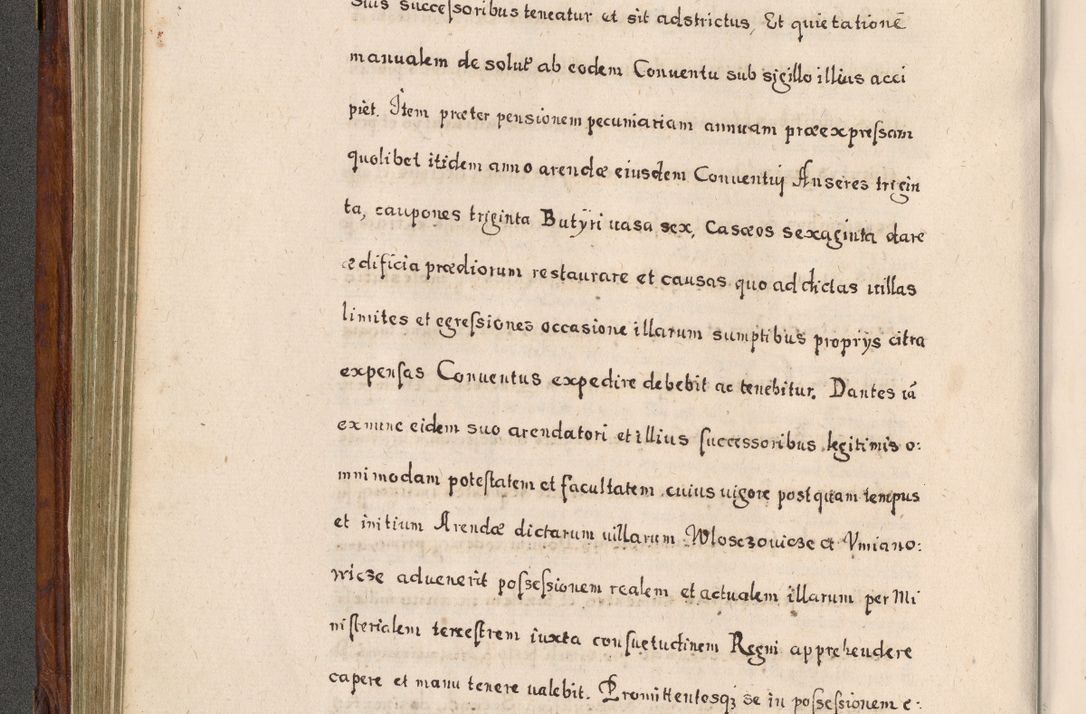 suis succeſsoribus teneatur et sit adstrictus, Et quietationē
manualem de solut̃ ab eodem Conuentu sub sigillo illius acci
piet. Item præter pensionem pecuniariam annuam præexpreſsam
quolibet itidem anno arendæ eiusdem Conuentuj Anseres trigin
ta, caupones triginta Butÿri uasa sex, Casæos sexaginta dare
ædificia prædiorum restaurare et causas quo ad dictas uillas
limites et egreſsiones occasione illarum sumptibus proprijs citra
expenſas Conuentus expedire debebit ac tenebitur. Dantes iā
ex nunc eidem suo arendatori et illius ſuccessoribus legitimis o:
mnimodam poteſtatem et facultatem cuius uigore postquam tempus
et initium Arendæ dictarum uillarum Wlosczouicze et Vmiano:
wicze aduenerit poſseſsionem realem et actualem illarum per Mi
niſterialem terreſtrem iuxta conſuetudinem Regni apprehendere
capere et manu tenere ualebit. Promittentesqz se in poſseſsionem e: